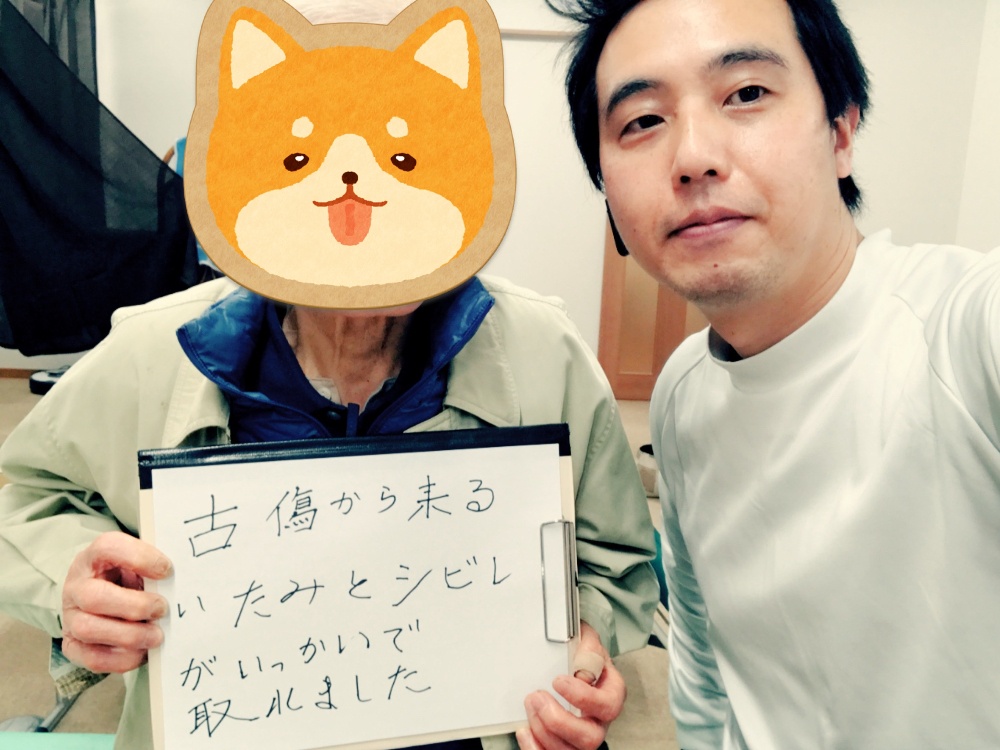 古傷から来る
いたみとシビレ
がいっかいで
取れました